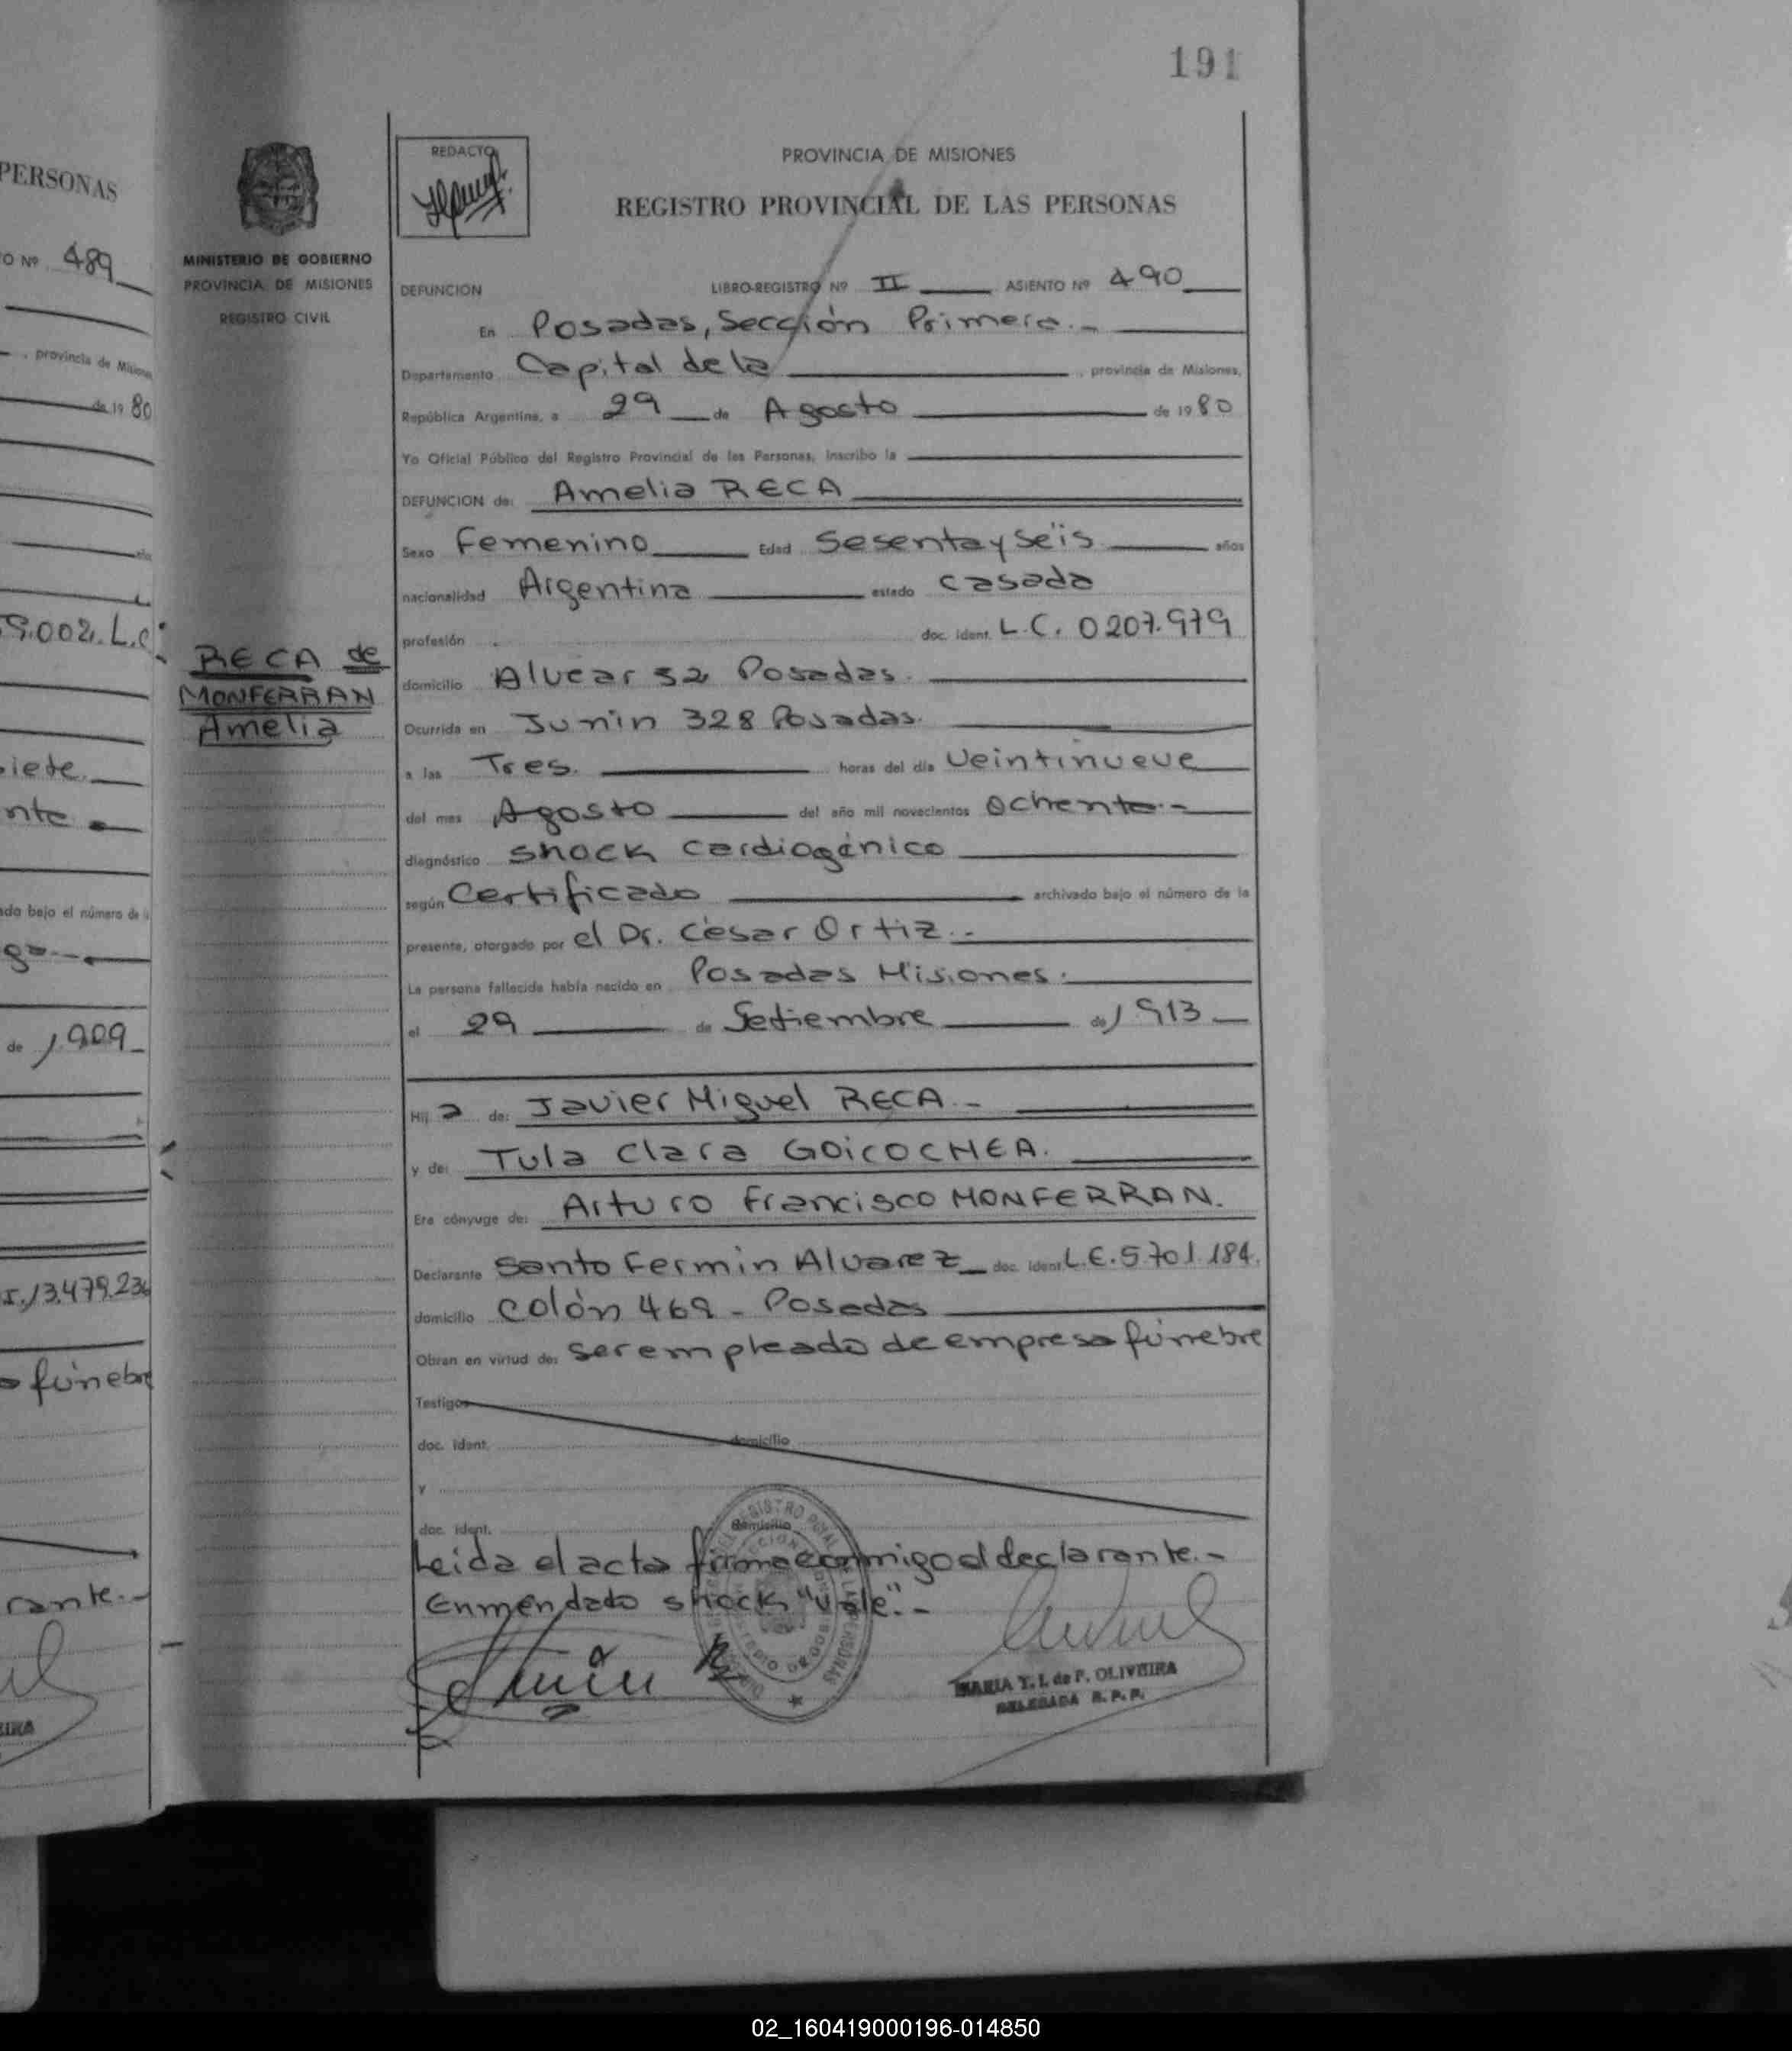 191
PERSONAS
O Nº 489
, provincia de Misiones
de 19 80
9.002. L.C.
iete.
nte
ado bajo el número de la
de 1,909
I. 13.479.236
fúnebre
rante.-
MINISTERIO DE GOBIERNO
PROVINCIA DE MISIONES
REGISTRO CIVIL
RECA de
MONFERRAN
Amelia
REDACTO
PROVINCIA DE MISIONES
REGISTRO PROVINCIAL DE LAS PERSONAS
DEFUNCION LIBRO-REGISTRO Nº II ASIENTO Nº 490
En Posadas, Sección Primera.-
Departamento Capital de la , provincia de Misiones,
República Argentina, a 29 de Agosto de 1980
Yo Oficial Público del Registro Provincial de las Personas, inscribo la
DEFUNCION de: Amelia RECA
Sexo Femenino Edad Sesenta y seis años
nacionalidad Argentina estado casada
profesión doc. ident. L.C. 0207.979
domicilio Alvear 52 Posadas.
Ocurrida en Junin 328 Posadas.
a las Tres. horas del día Veintinueve
del mes Agosto del año mil novecientos Ochenta.-
diagnóstico shock cardiogénico
según Certificado archivado bajo el número de la
presente, otorgado por el Dr. César Ortiz.-
La persona fallecida había nacido en Posadas Misiones.
el 29 de Setiembre de 1913
Hij a de: Javier Miguel RECA.-
y de: Tula Clara GOICOCHEA.
Era cónyuge de: Arturo Francisco MONFERRAN.
Declarante Santo Fermin Alvarez doc. ident L.E. 5.701.184.
domicilio Colón 469 - Posadas
Obran en virtud de: ser empleado de empresa fúnebre
Testigos
doc. ident. domicilio
y
doc. ident. domicilio
Leida el acta firma conmigo el declarante.-
Enmendado shock "Vale".-
MARIA Y. I. de F. OLIVEIRA
DELEGADA R. P. P.
02_160419000196-014850